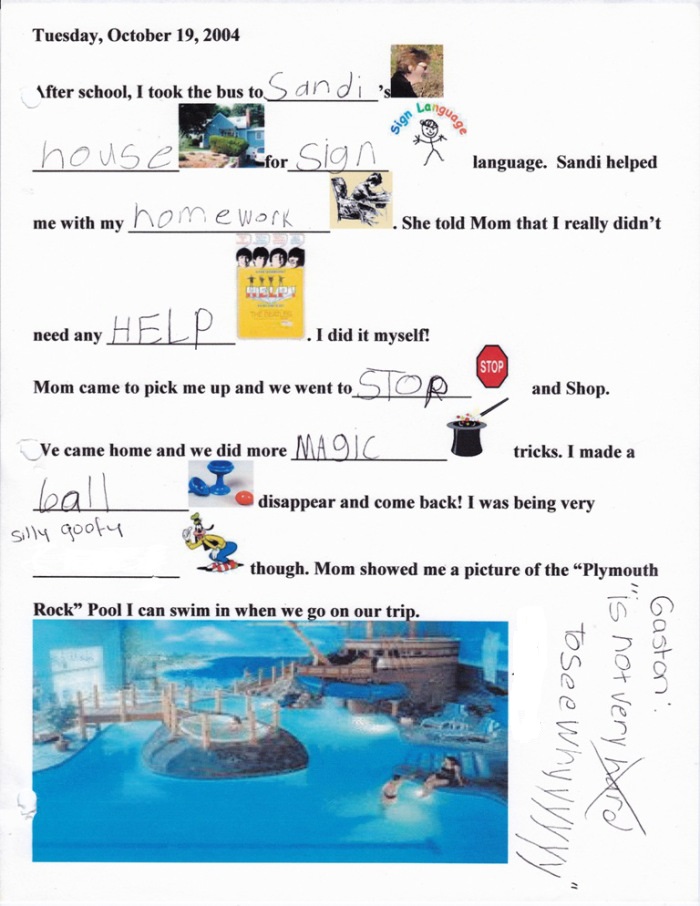 Tuesday, October 19, 2004
After school, I took the bus to Sandi 's
Sign Language
house for sign language. Sandi helped
me with my homework . She told Mom that I really didn't
HELP
THE BEATLES
need any HELP . I did it myself!
STOP
Mom came to pick me up and we went to STOP and Shop.
We came home and we did more MAGIC tricks. I made a
ball disappear and come back! I was being very
silly goofy
though. Mom showed me a picture of the "Plymouth
Rock" Pool I can swim in when we go on our trip.
Gaston:
"is not very hard
to see whyyyyyy"